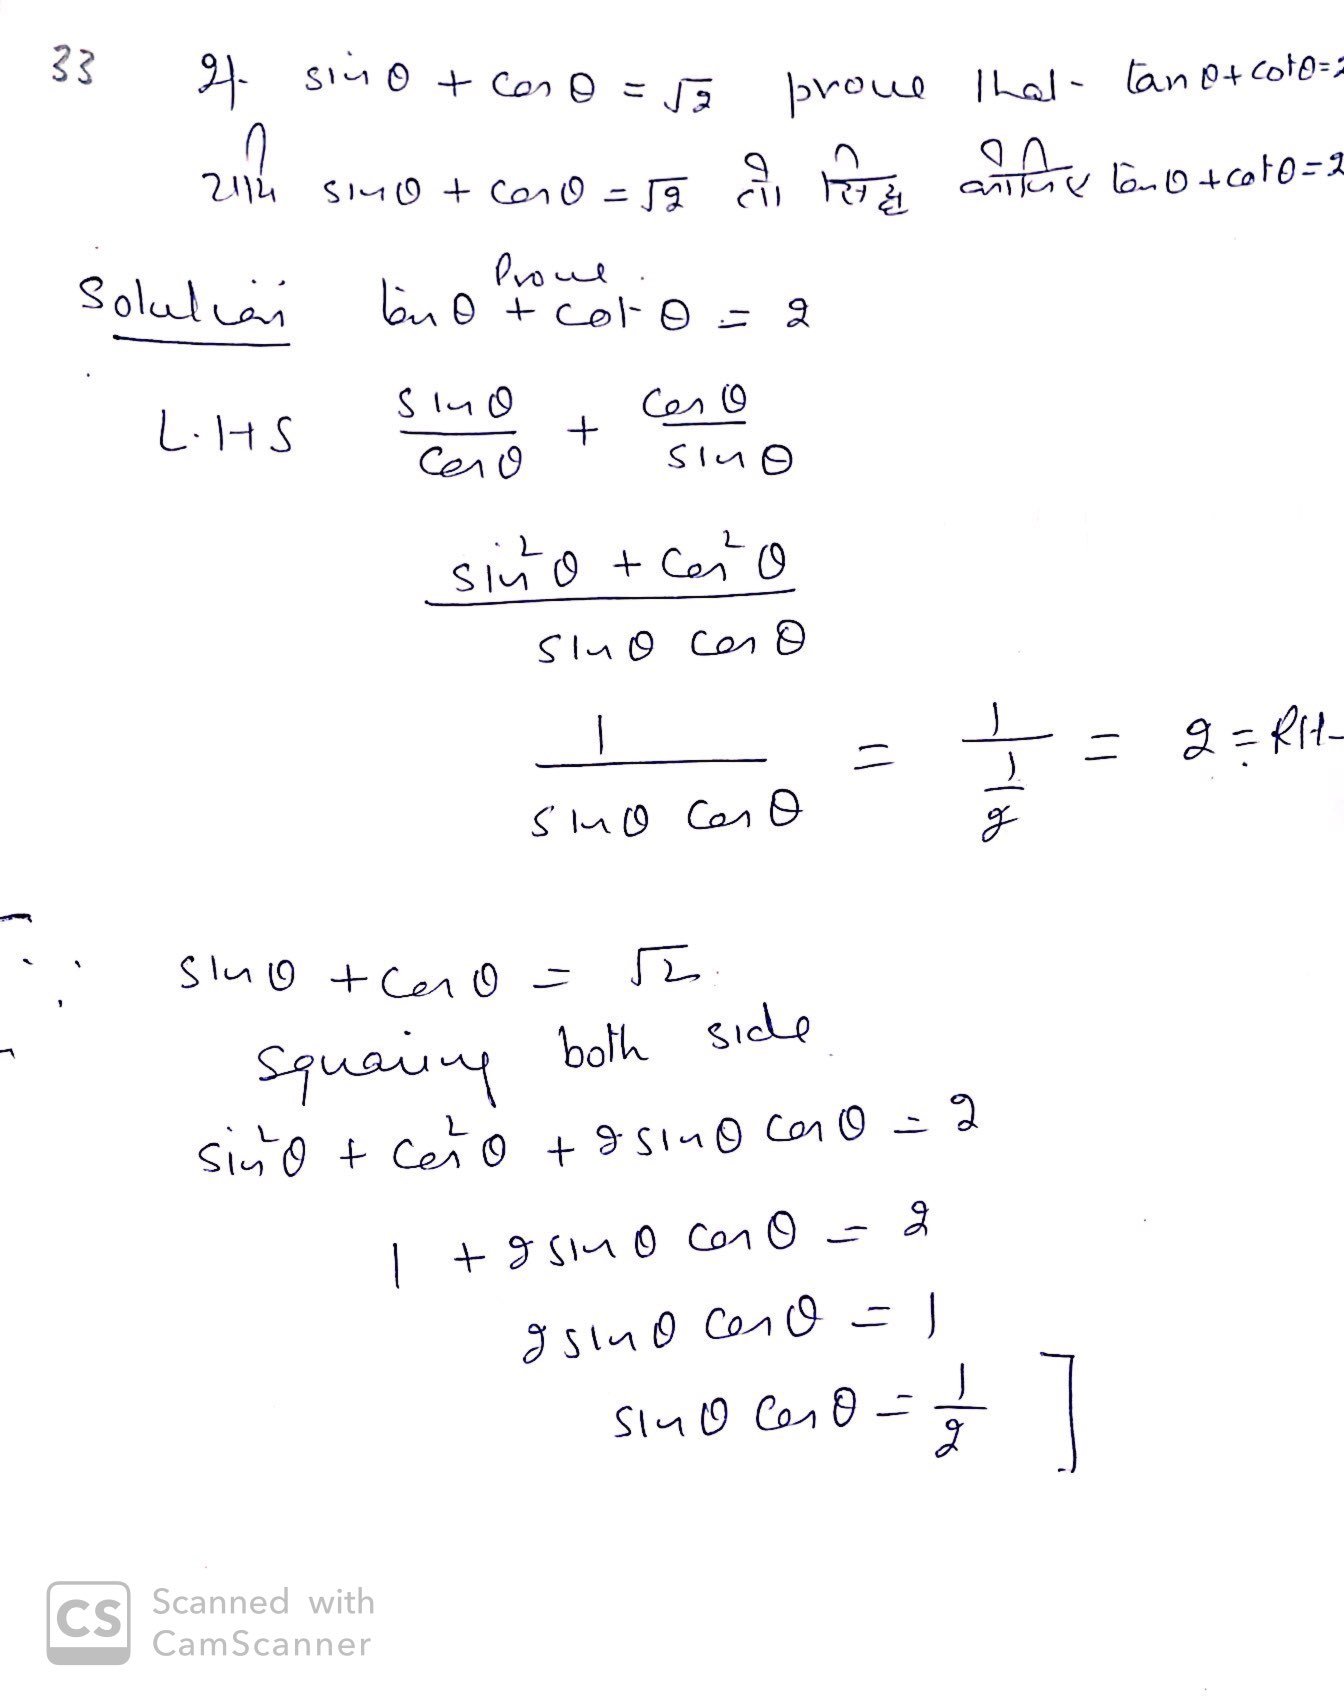 33 If sin θ + cos θ = √2 prove that tan θ + cot θ = 2
यदि sin θ + cos θ = √2 तो सिद्ध कीजिए tan θ + cot θ = 2
Solution Prove
tan θ + cot θ = 2
L.H.S sin θ / cos θ + cos θ / sin θ
sin² θ + cos² θ
sin θ cos θ
1 / sin θ cos θ = 1 / (1/2) = 2 = RH
∵ sin θ + cos θ = √2
Squaring both side
sin² θ + cos² θ + 2 sin θ cos θ = 2
1 + 2 sin θ cos θ = 2
2 sin θ cos θ = 1
sin θ cos θ = 1/2 ]
CS Scanned with
CamScanner